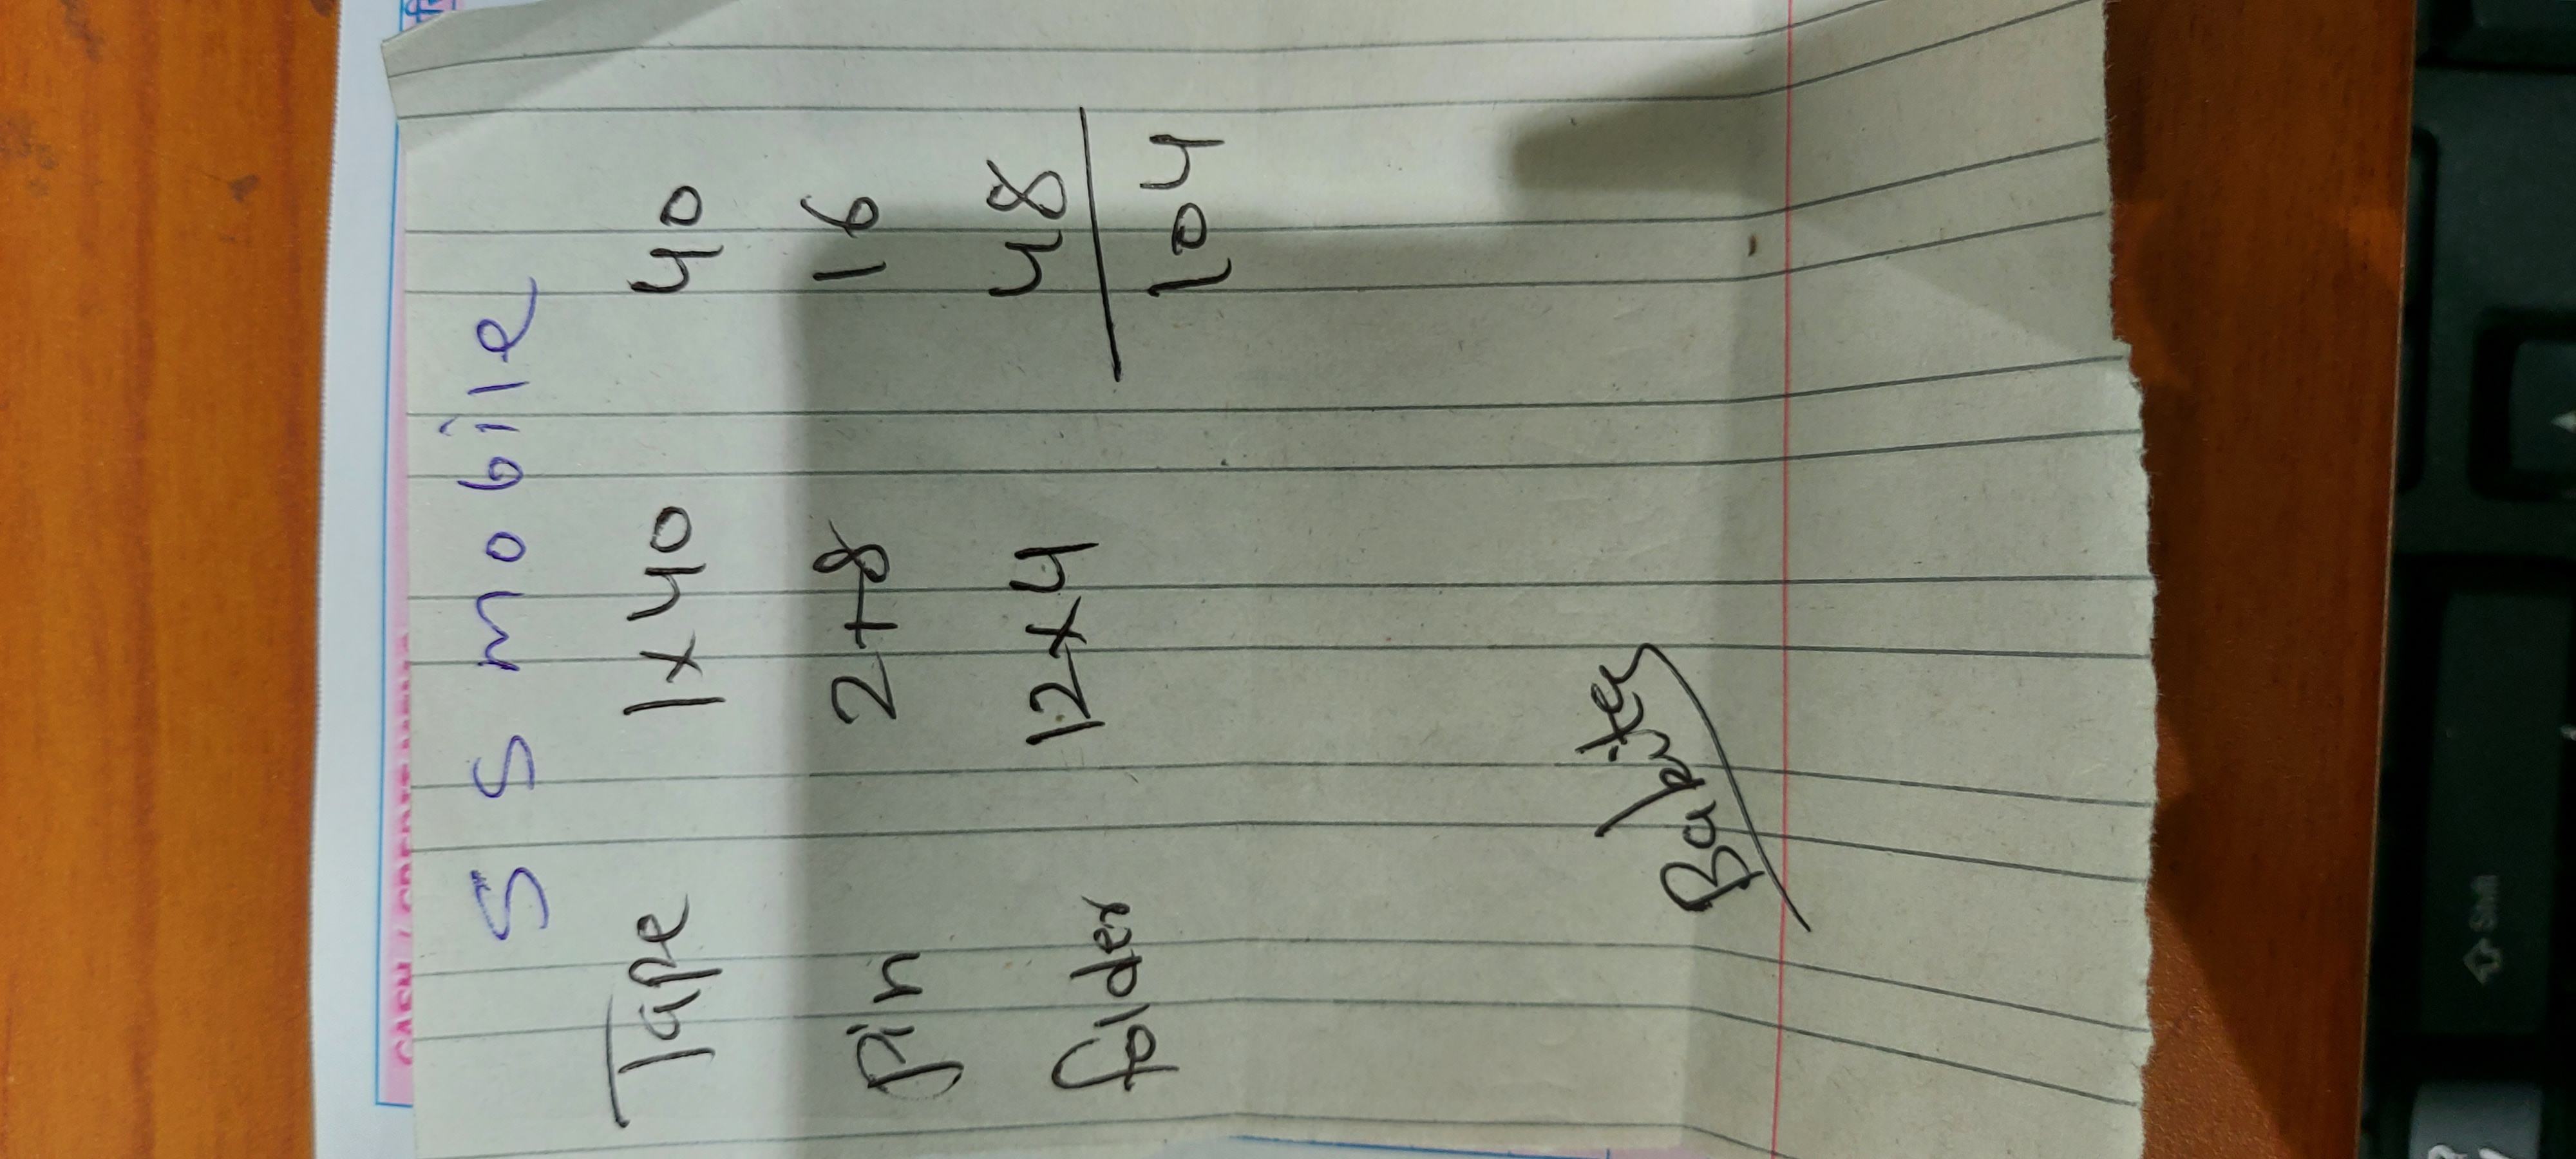 CASH / CREDIT MEMO
S S mobile
Tape 1x40 40
pin 2+8 16
folder 12x4 48
104
Shift